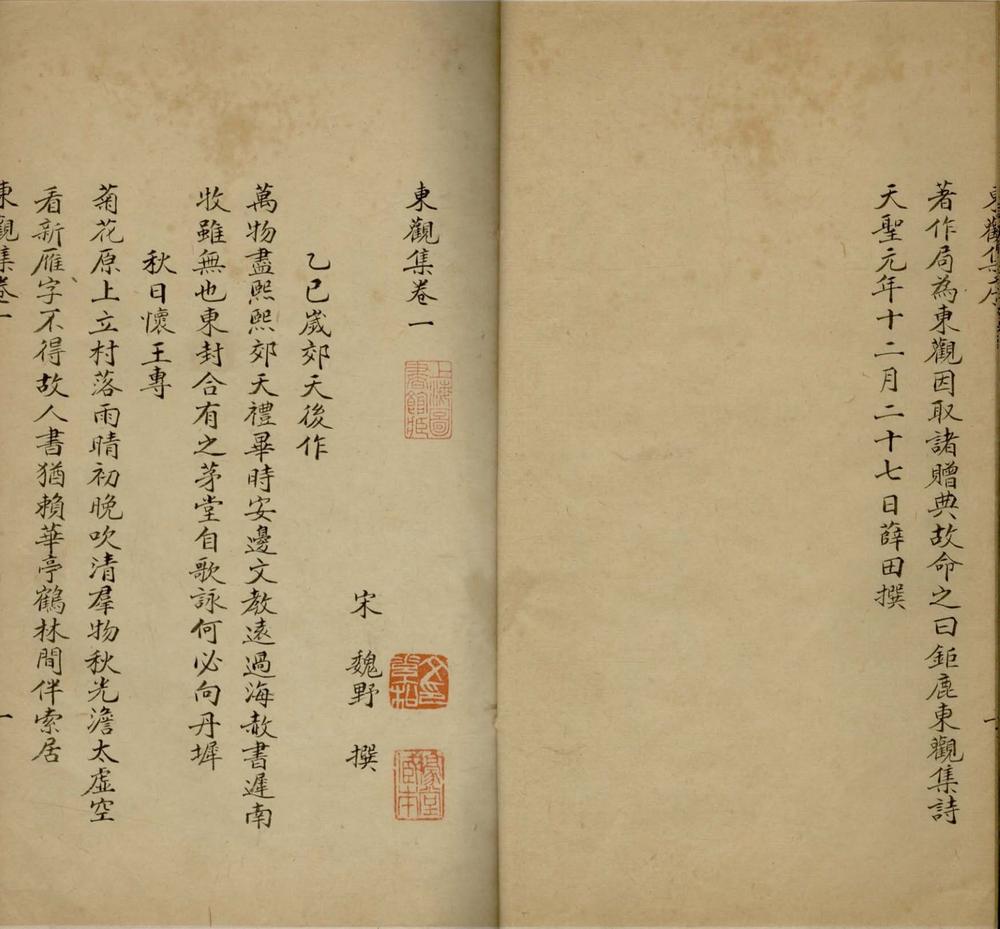 東觀集序
著作局為東觀因取諸贈典故命之曰鉅鹿東觀集詩
天聖元年十二月二十七日薛田撰
一
東觀集卷一
上海圖書館藏
宋 魏野 撰
乙巳嵗郊天後作
萬物盡熙熙郊天禮畢時安邊文教遠過海赦書遲南
牧雖無也東封合有之茅堂自歌詠何必向丹墀
秋日懷王專
菊花原上立村落雨晴初晚吹清羣物秋光澹太虛空
看新雁字不得故人書猶賴華亭鶴林間伴索居
東觀集卷一
一